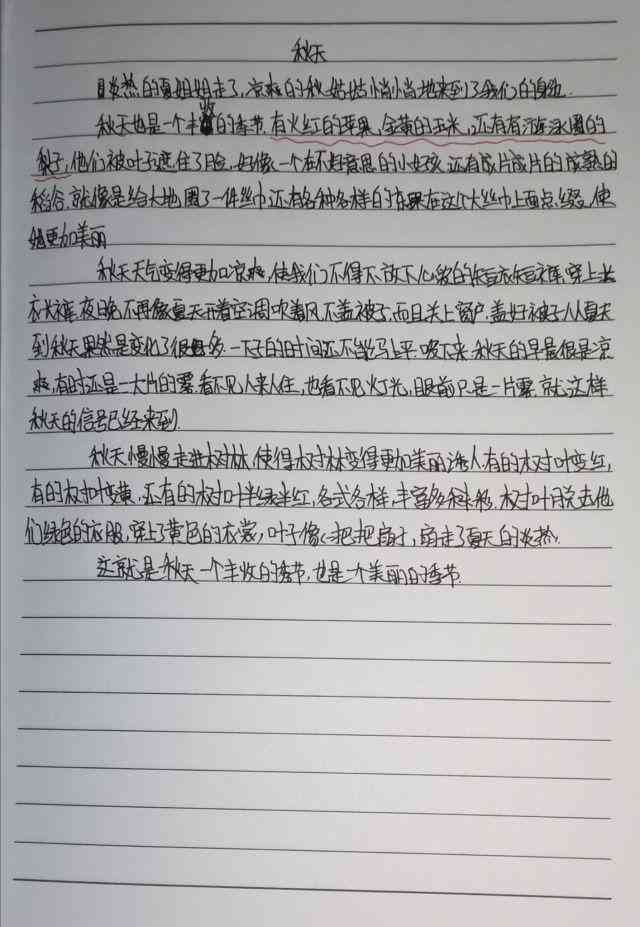 秋天
炎热的夏姐姐走了,凉爽的秋姑姑悄悄地来到了我们的身边.
秋天也是一个丰的季节.有火红的苹果,金黄的玉米,还有有的
梨子,他们被叶子遮住了脸,好像一个不好意思的小女孩,还有成片成片的成熟的
稻谷.就像是给大地围了一件丝巾,还有各种各样的在这个大丝巾上面点缀,使
她更加美丽
秋天天气变得更加凉爽,使我们不得不放下心爱的短衣短裤,穿上长
衣长裤,夜晚不再像夏天开着空调吹着风,不盖被子,而且关上窗户.盖好被子.从夏天
到秋天果然是变化了很多,一下子的时间还不能马上平下来.秋天的早晨很是凉
爽,有时还是一大片的雾,看不见人来人往,也看不见灯光,眼前只是一片雾.就这样
秋天的信号已经来到.
秋天慢慢走进树林,使得树林变得更加美丽诱人有的树叶变红,
有的树叶变黄,还有的树叶半绿半红,各式各样,丰富多彩,树叶脱去他
们绿色的衣服,穿上了黄色的衣裳,叶子像一把把扇子,扇走了夏天的炎热.
这就是秋天一个丰收的季节,也是一个美丽的季节.